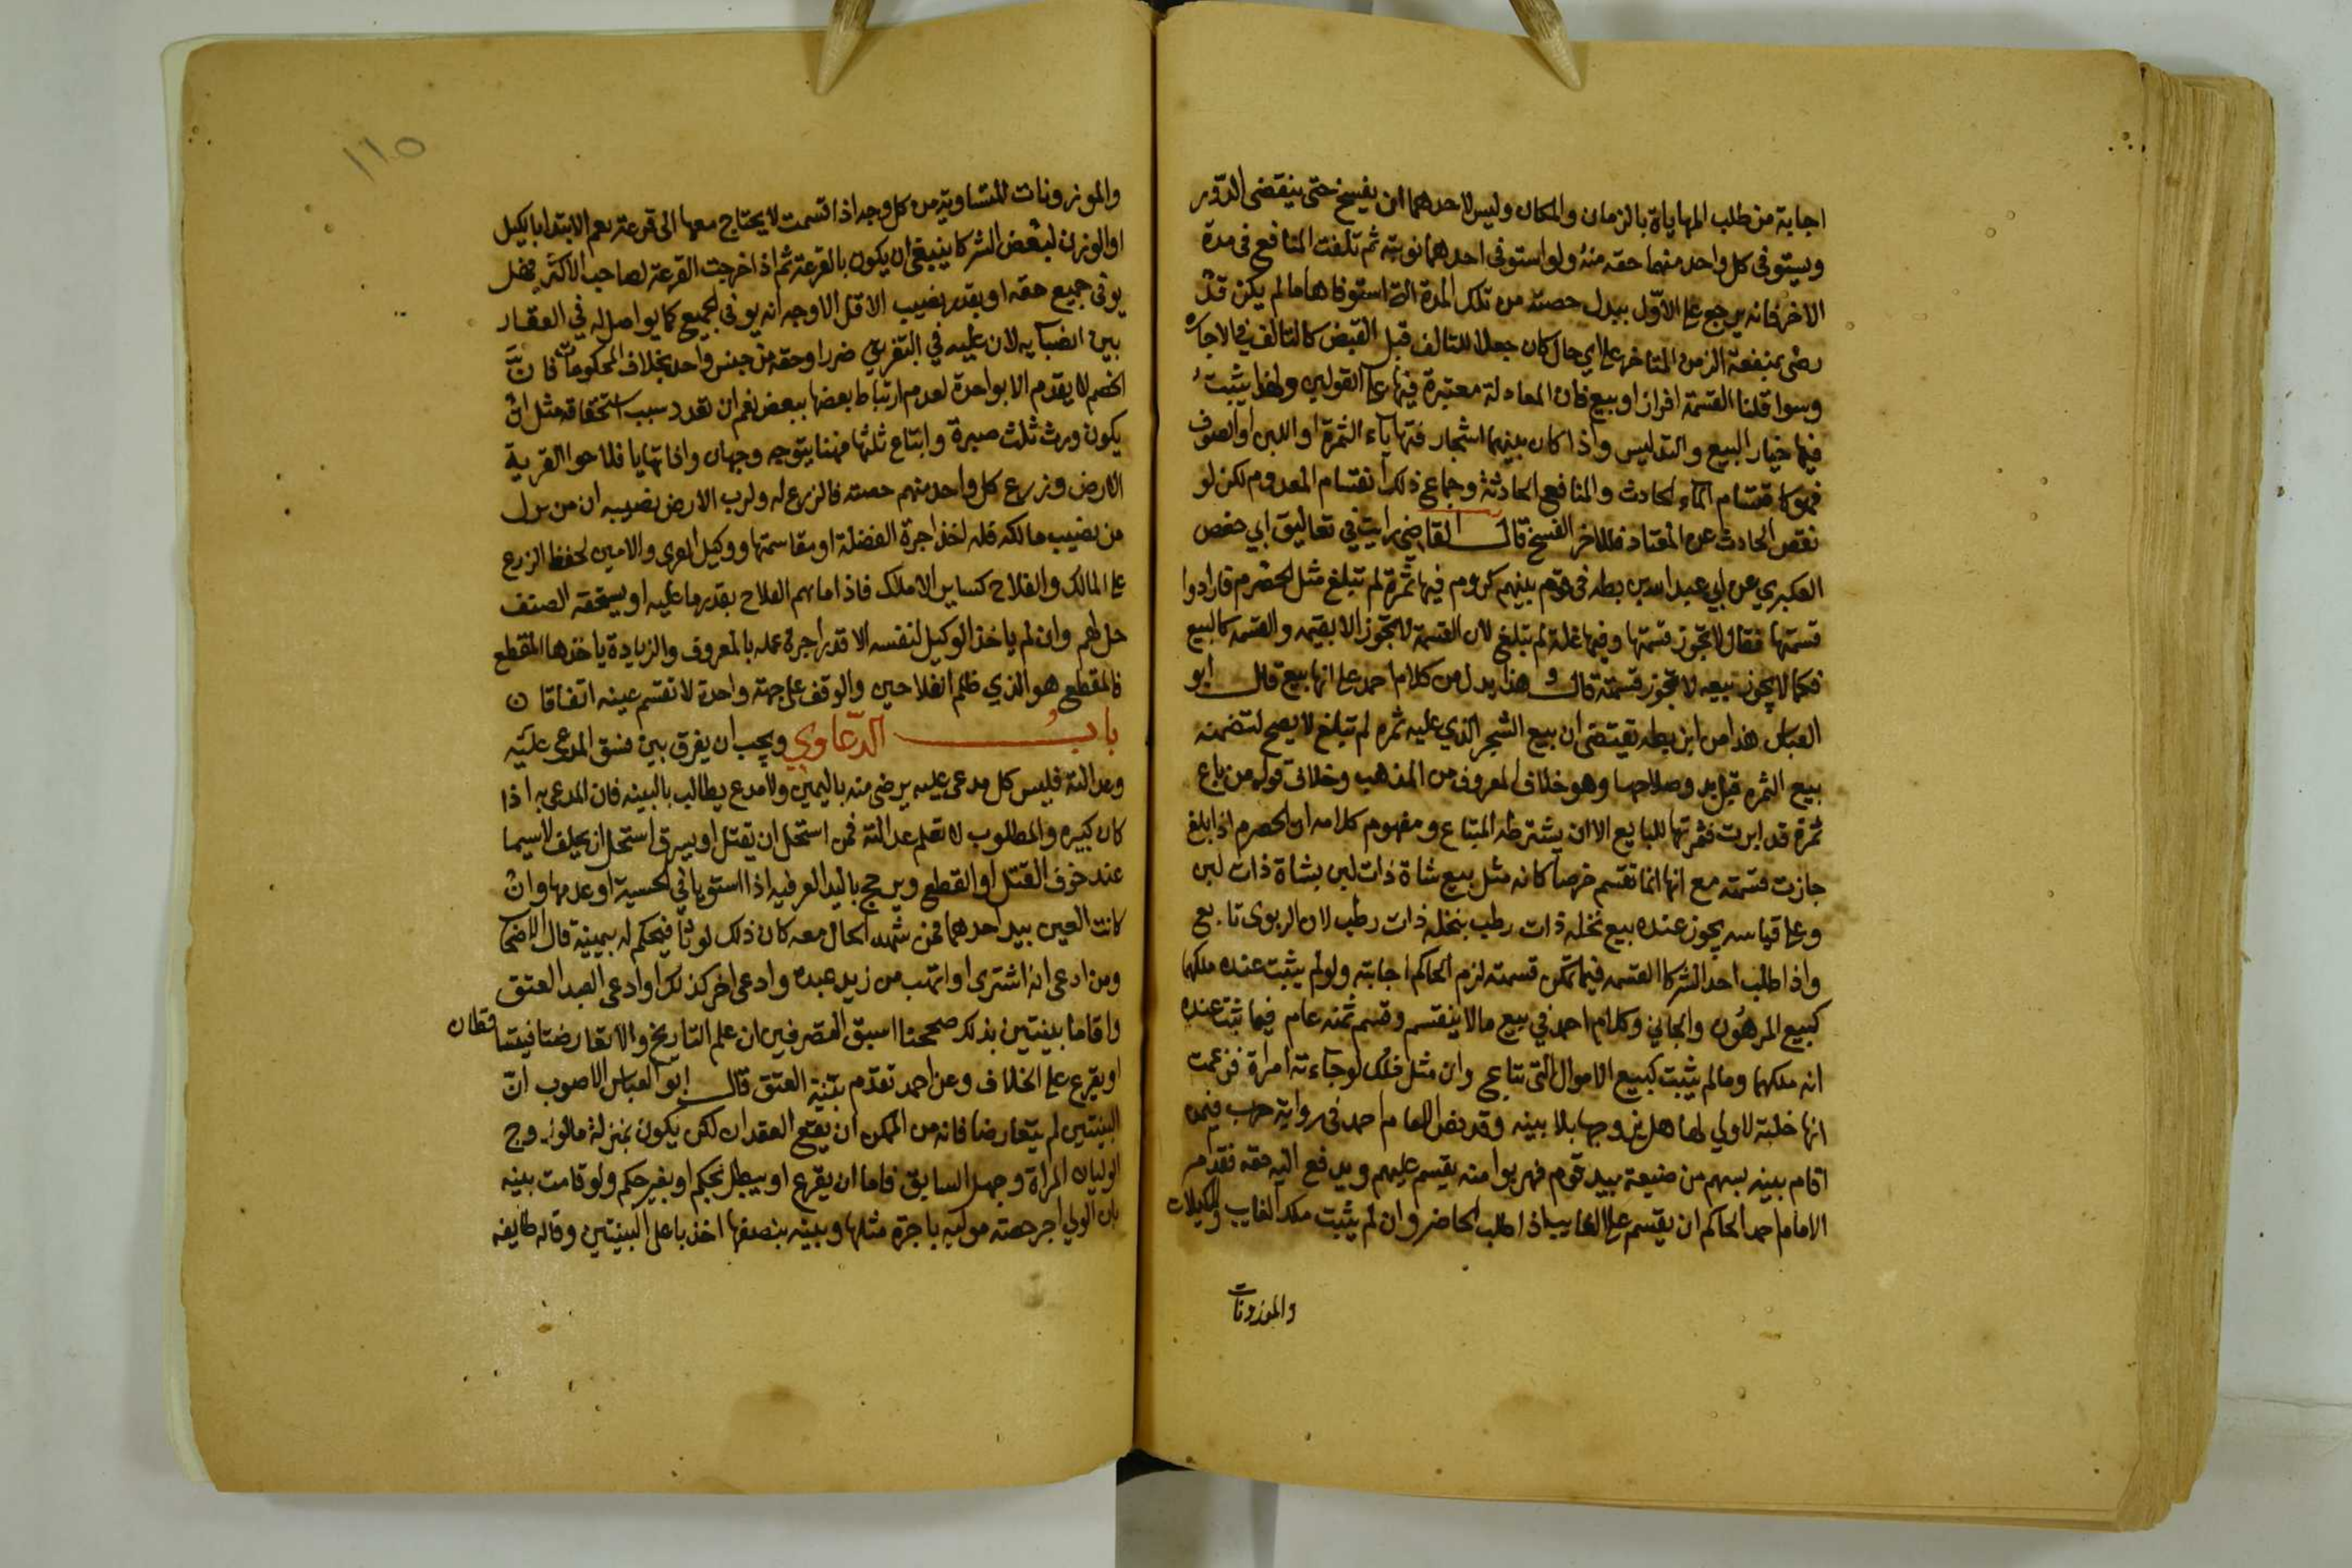 اجابة من طلب المهاياة بالزمان والمكان وليس لاحدهما ان يفسخ حتى ينقضى الدور
ويستوفى كل واحد منهما حقه منه ولو استوفى احدهما نوبته ثم تلفت المنافع فى مدة
الاخر فانه يرجع على الاول ببدل حصته من تلك المدة التى استوفاها مالم يكن قد
رضى بمنفعة الزمن المتاخر على اي حال كان جعلا للتالف قبل القبض كالتالف في الاجارة
وسوا قلنا القسمة افراز او بيع فان المعادلة معتبرة فيها على القولين ولهذا يثبت
فيها خيار البيع والتدليس واذا كان بينهما اشجار فتهاياء الثمرة او اللبن او الصوف
فهو كاقتسام الماء الحادث والمنافع الحادثة وجماع ذلك انقسام المعدوم لكن لو
نقص الحادث عن المعتاد فللاخر الفسخ قال القاضي رايت في تعاليق ابي حفص
العكبري عن ابي عبد الله بن بطه فى قوم بينهم كروم فيها ثمرة لم تبلغ مثل الحصرم فارادوا
قسمتها فقال لا تجوز قسمتها وفيها غلة لم تبلغ لان القسمة لا تجوز الا بقيمه والقسمه كالبيع
فكما لا يجوز بيعه لا تجوز قسمته قال وهذا يدل من كلام احمد على انها بيع قال ابو
العباس هذا من ابن بطه تقتضى ان بيع الشجر الذي عليه ثمره لم تبلغ لا يصح لتضمنه
بيع الثمره قبل بدو صلاحها وهو خلاف المعروف من المذهب وخلاف قوله من باع
ثمرة قد ابرت فثمرتها للبايع الا ان يشترطه المبتاع ومفهوم كلامه ان الحصرم اذا بلغ
جازت قسمته مع انها انما تقسم خرصا كانه مثل بيع شاة ذات لبن بشاة ذات لبن
وعلى قياسه يجوز عنده بيع نخله ذات رطب بنخله ذات رطب لان الربوى تابع
واذا طلب احد الشركا القسمه فيما تمكن قسمته لزم الحاكم اجابته ولو لم يثبت عنده ملكهما
كبيع المرهون والجاني وكلام احمد في بيع مالا ينقسم وقسم ثمنه عام فيما ثبت عنده
انه ملكهما ومالم يثبت كبيع الاموال التى تتاع وان مثل ذلك لو جاءته امراة فزعمت
انها خلية لاولي لها هل يزوجها بلا بينه وقد نص الامام احمد فى رواية حرب فيمن
اقام بينه بسهم من ضيعة بيد قوم فهربوا منه يقسم عليهم ويدفع اليه حقه فقد امر
الامام احمد الحاكم ان يقسم على الغايب اذا طلب الحاضر وان لم يثبت ملك الغايب والمكيلات
والموزونات
١١٥
والموزونات المتساوية من كل وجه اذا قسمت لا يحتاج معها الى قرعة نعم الابتدا بالكيل
او الوزن لبعض الشركا ينبغي ان يكون بالقرعة ثم اذا خرجت القرعة لصاحب الاكثر فهل
يوفى جميع حقه او بقدر نصيب الاقل الاوجه انه يوفى الجميع كما يواصل له في العقار
بين انصبايه لان عليه في التفريق ضررا وحقه من جنس واحد بخلاف المحكومات فان
الخصم لا يقدم الا بواحدة لعدم ارتباط بعضها ببعض نعم ان تعدد سبب استحقاقه مثل ان
يكون ورث ثلث صبرة وابتاع ثلثها فهنا يتوجه وجهان واذا تهايا فلاحوا القرية
الارض وزرع كل واحد منهم حصته فالزرع له ولرب الارض نصيبه ان من نزل
من نصيب مالكه فله اخذ اجرة الفضلة او مقاسمتها ووكيل العرى والامين لحفظ الزرع
على المالك والفلاح كساير الاملاك فاذا امانهم الفلاح بقدر ما عليه او يستحقه الصنف
حل لهم وان لم ياخذ الوكيل لنفسه الا قدر اجرة عمله بالمعروف والزيادة ياخذها المقطع
فالمقطع هو الذي ظلم الفلاحين والوقف على جهة واحدة لا تقسم عينه اتفاقا
باب الدعاوي ويجب ان يفرق بين فسق المدعى عليه
وعدالته فليس كل مدعى عليه يرضى منه باليمين ولا مدع يطالب بالبينه فان المدعى به اذا
كان كبيره والمطلوب لا تعلم عدالته فمن استحل ان يقتل او يسرق استحل ان يحلف لاسيما
عند خوف القتل او القطع ويرجح باليد العرفيه اذا استويا في الحسية او عدمها وان
كانت العين بيد احدهما فمن شهد الحال معه كان ذلك لوثا فيحكم له بيمينه قال الاصحاب
ومن ادعى انه اشترى او اتهب من زيد عبده وادعى اخر كذلك او ادعى العبد العتق
واقاما بينتين بذلك صححنا اسبق التصرفين ان علم التاريخ والا تعارضتا فيتساقطان
او يقرع على الخلاف وعن احمد تقدم بينة العتق قال ابو العباس الاصوب ان
البينتين لم يتعارضا فانه من الممكن ان يقع العقدان لكن يكون بمنزلة مالو زوج
الوليان المراة وجهل السابق فاما ان يقرع او يبطل بحكم او بغير حكم ولو قامت بينه
بان الولي اجر حصته موليه باجرة مثلها وبينه بنصفها اخذ باعلى البينتين وقاله طايفه